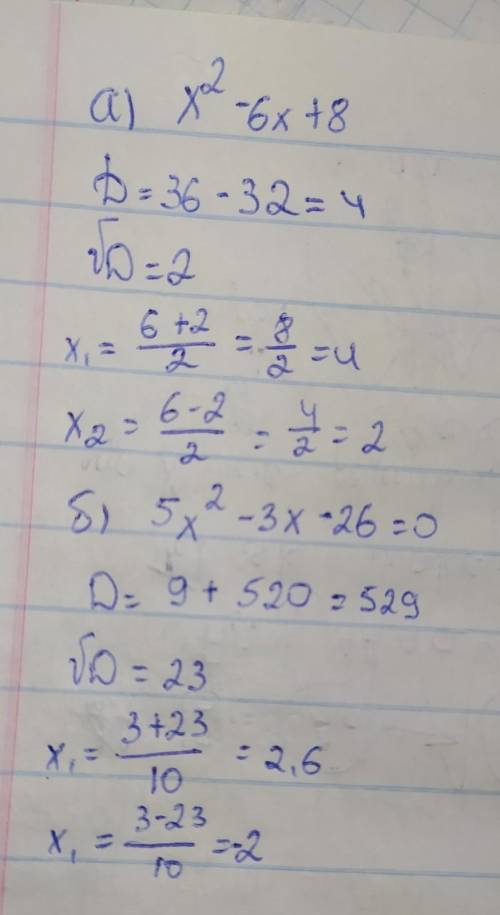 а) x² -6x+8
D=36-32=4
√D=2
x₁= (6+2)/2 = 8/2 =4
x₂= (6-2)/2 = 4/2 = 2
б) 5x² -3x-26=0
D= 9+ 520=529
√D=23
x₁= (3+23)/10 = 2,6
x₁= (3-23)/10 =-2